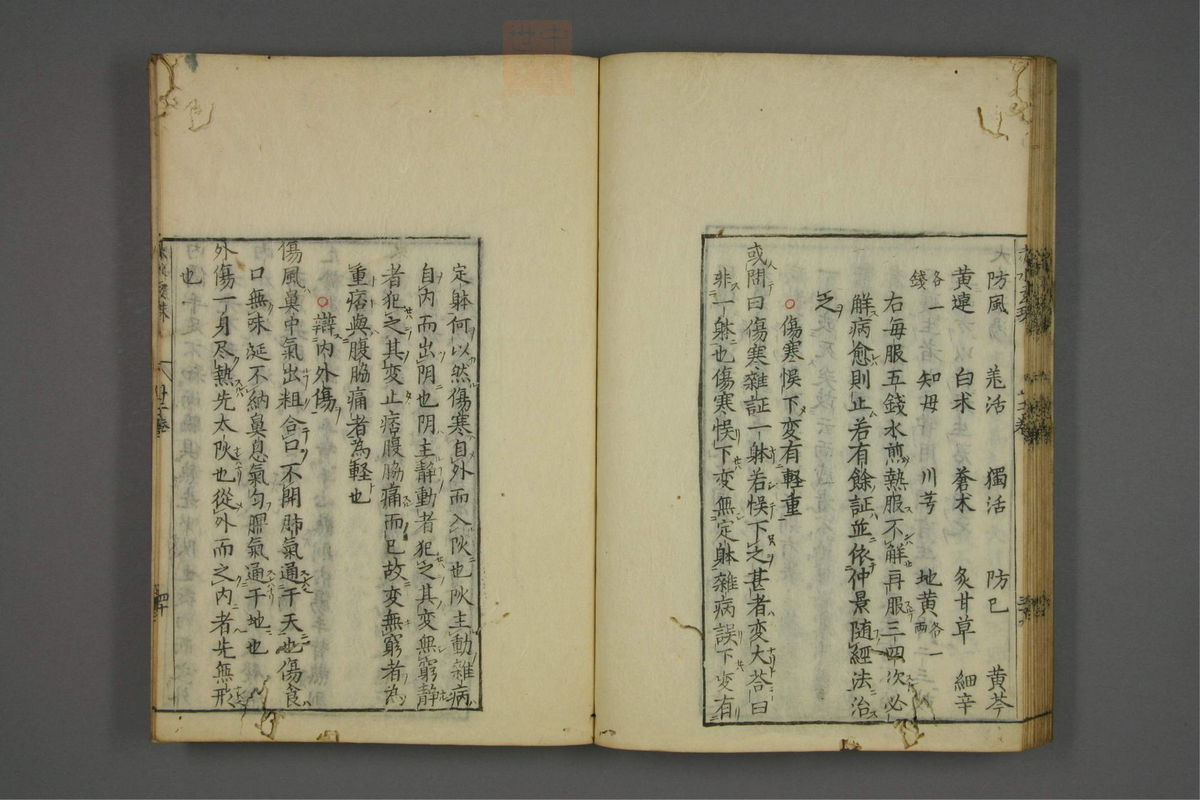 防風 羗活 獨活 防已 黄芩
黄連 白朮 蒼朮 炙甘草 細辛
各一錢 知母 川芎 地黄各一兩
右每服五錢水煎熱服不解再服三四次必
解病愈則止若有餘証並依仲景随經法治
之
○傷寒悮下変有軽重
或問曰傷寒雜証一躰若悮下之甚者変大荅曰
非一躰也傷寒悮下変無定躰雜病誤下変有
定躰何以然傷寒自外而入阦也阦主動雜病
自内而出阴也阴主静動者犯之其変無窮静
者犯之其変止痞腹脇痛而已故変無窮者為
重痞與腹脇痛者為軽也
○辯内外傷
傷風鼻中氣出粗合口不開肺氣通于天也傷食
口無味涎不納鼻息氣匀脾氣通于地也
外傷一身尽熱先太阦也從外而之内者先無形
也